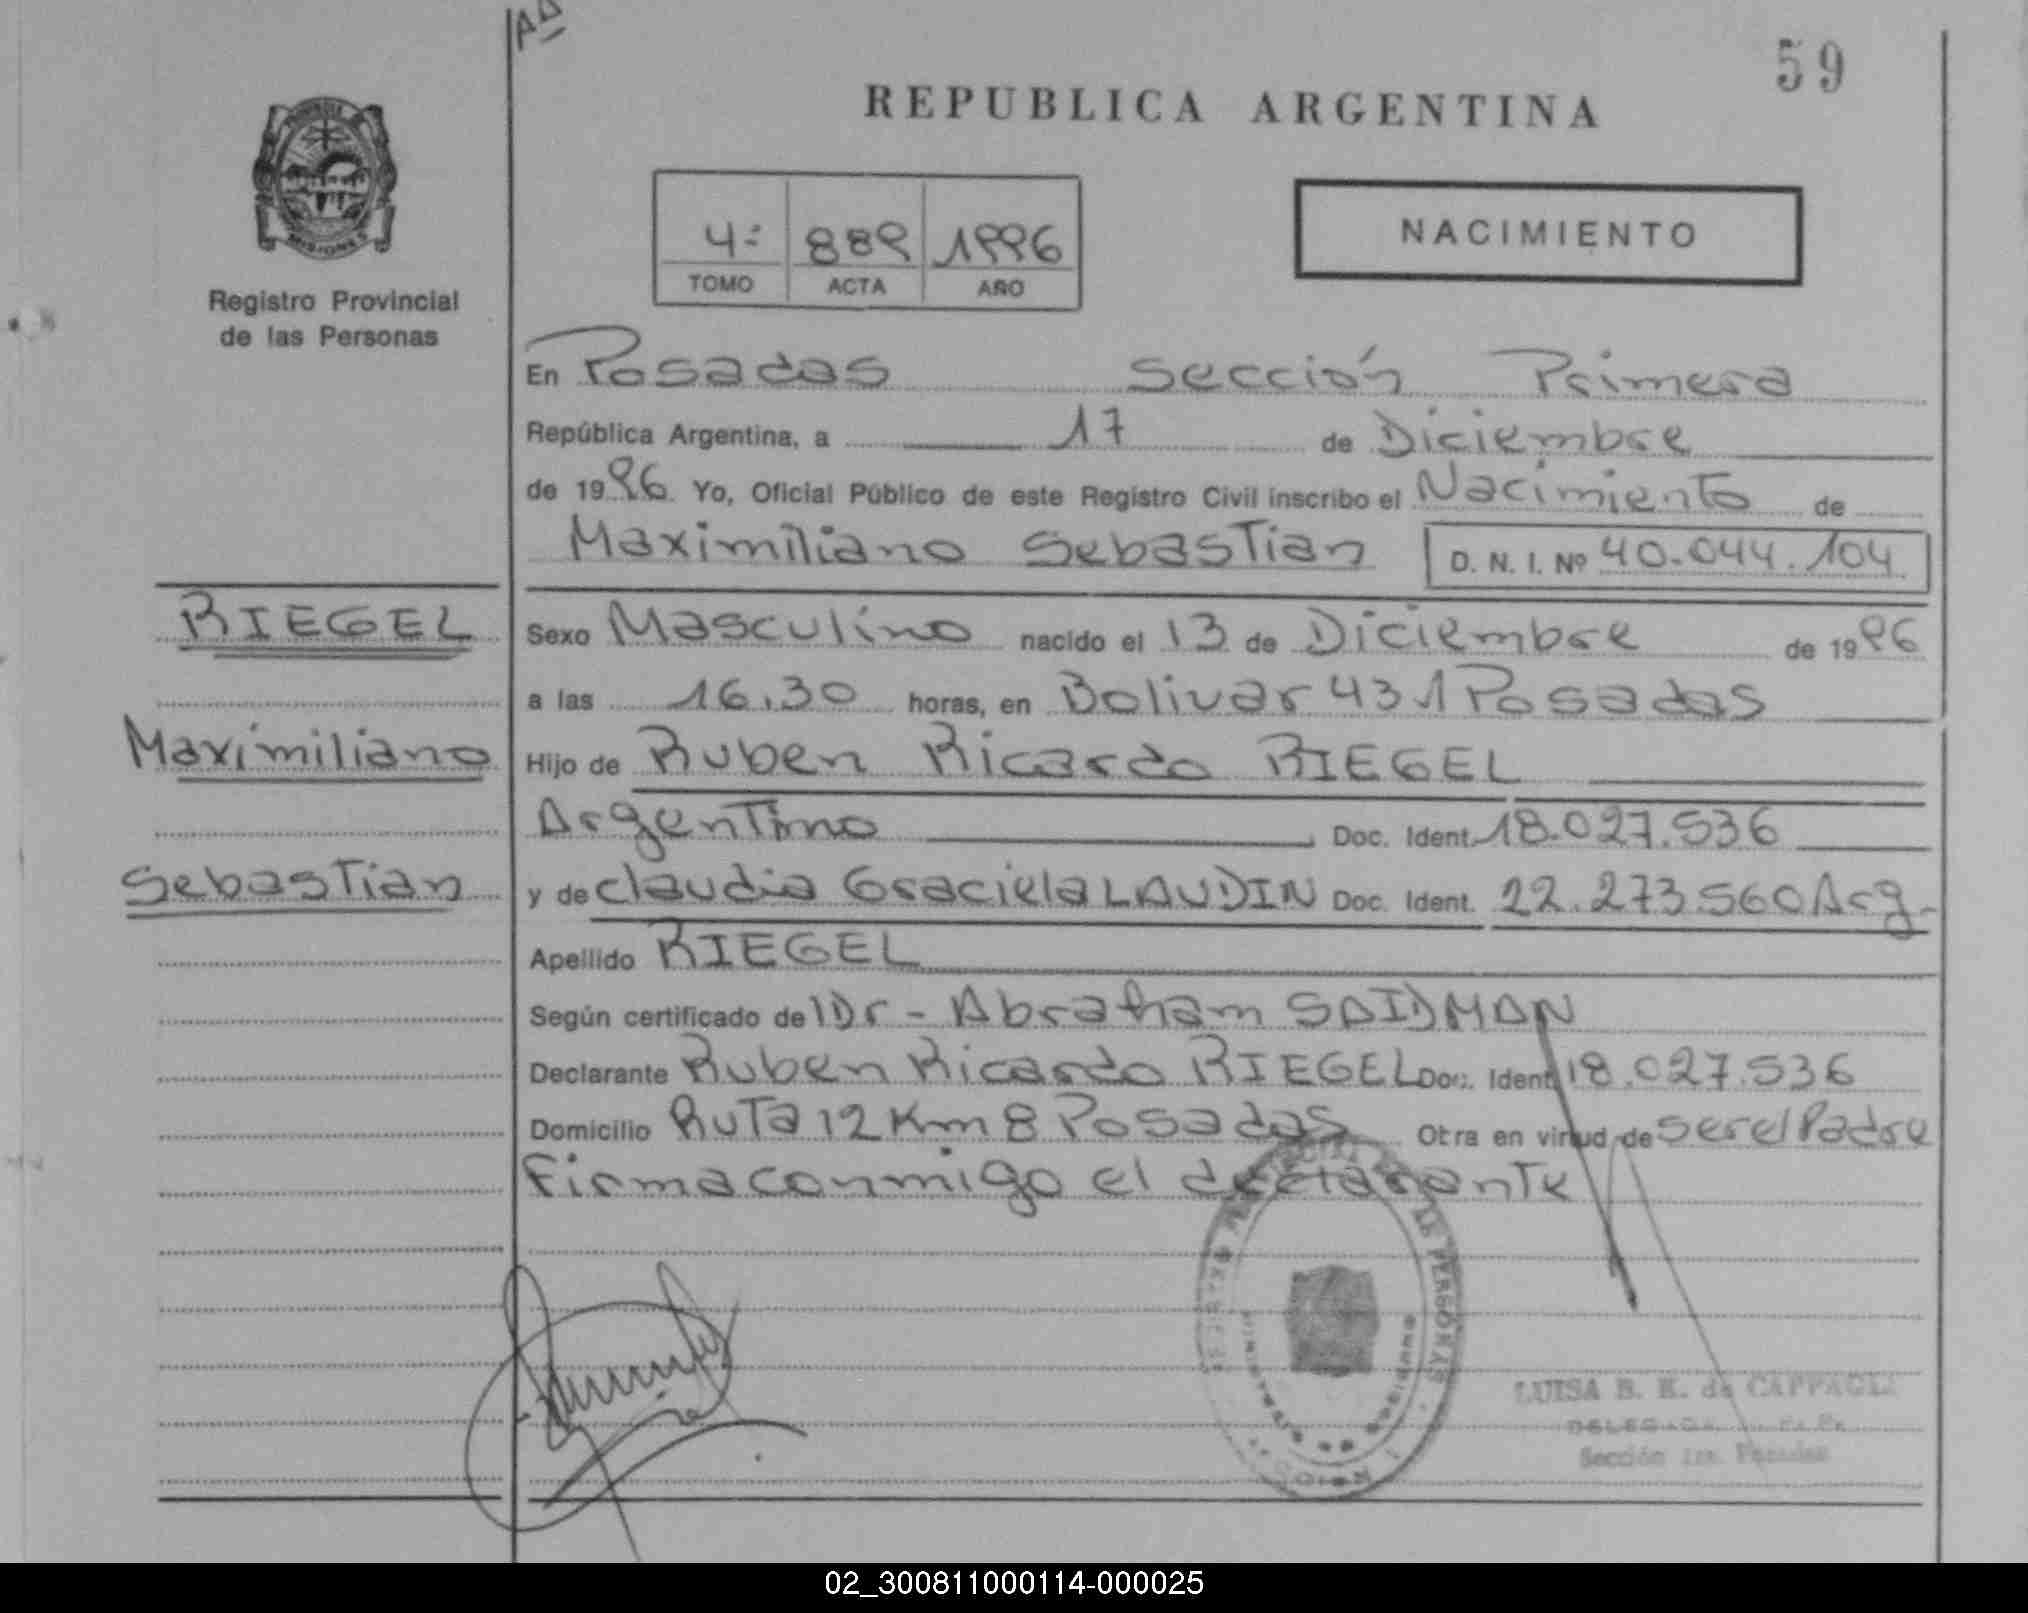 Aº
59
REPUBLICA ARGENTINA
PROVINCIA
MISIONES
Registro Provincial
de las Personas
4º 889 1996
TOMO ACTA AÑO
NACIMIENTO
En Posadas Sección Primera
República Argentina, a 17 de Diciembre
de 1996. Yo, Oficial Público de este Registro Civil inscribo el Nacimiento de
Maximiliano Sebastian D. N. I. Nº 40.044.104
RIEGEL
Sexo Masculino nacido el 13 de Diciembre de 1996
a las 16,30 horas, en Bolivar 431 Posadas
Maximiliano
Hijo de Ruben Ricardo RIEGEL
Argentino Doc. Ident. 18.027.536
Sebastian
y de Claudia Graciela LAUDIN Doc. Ident. 22.273.560 Arg.
Apellido RIEGEL
Según certificado de Dr - Abraham SAIDMAN
Declarante Ruben Ricardo RIEGEL Doc. Ident. 18.027.536
Domicilio Ruta 12 Km 8 Posadas Otra en virtud de ser el Padre
Firma conmigo el declarante
LUISA B. K. de CAPPAGLI
Sección 1ra. Posadas
02_300811000114-000025